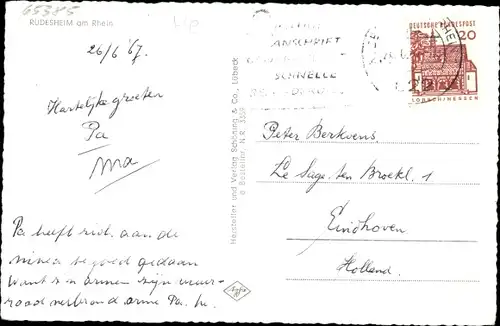 65385
RÜDESHEIM am Rhein
26/6 '67.
Hartelijke groeten
Pa
ma
Pa heeft zich aan de
te goed gedaan
Want z'n armen zijn
verbrand arme Pa.
Hersteller und Verlag Schöning & Co., Lübeck
Bestellnr. N.R. 3559
Agfa
ANSCHRIFT
SCHNELLE
DEUTSCHE BUNDESPOST
20
LORSCH/HESSEN
Peter Berkvens.
Le Sage ten Broekl. 1
Eindhoven
Holland.